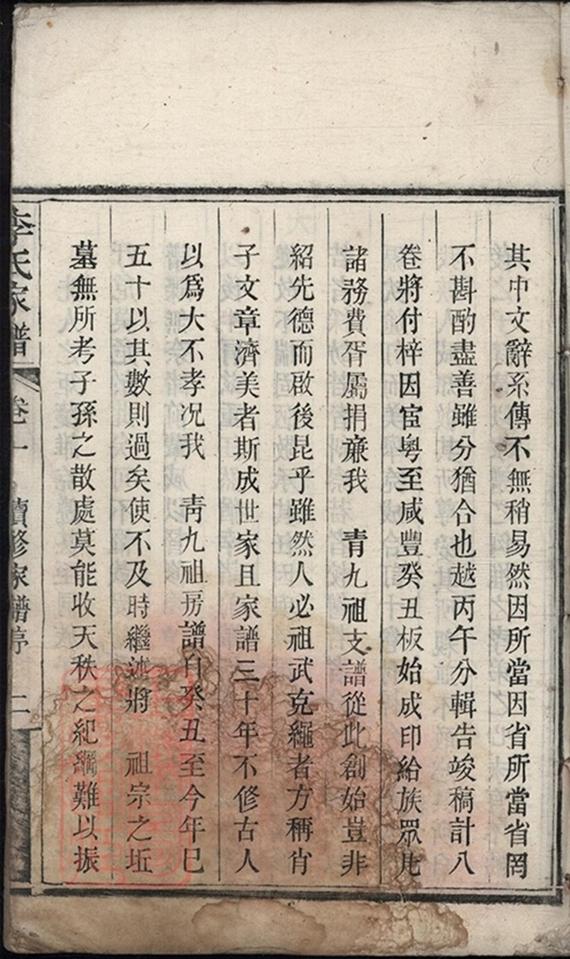 其中文辭系傳不無稍易然因所當因省所當省罔
不斟酌盡善雖分猶合也越丙午分輯告竣稿計八
卷將付梓因宦粤至咸豐癸丑板始成印給族眾凡
諸務費胥屬捐亷我 青九祖支譜從此創始豈非
紹先德而啟後昆乎雖然人必祖武克繩者方稱肖
子文章濟美者斯成世家且家譜三十年不修古人
以爲大不孝况我 靑九祖房譜自癸丑至今年已
五十以其數則過矣使不及時繼述將 祖宗之坵
墓無所考子孫之散處莫能收天秩之紀綱難以振
李氏家譜 卷一 續修家譜序 二